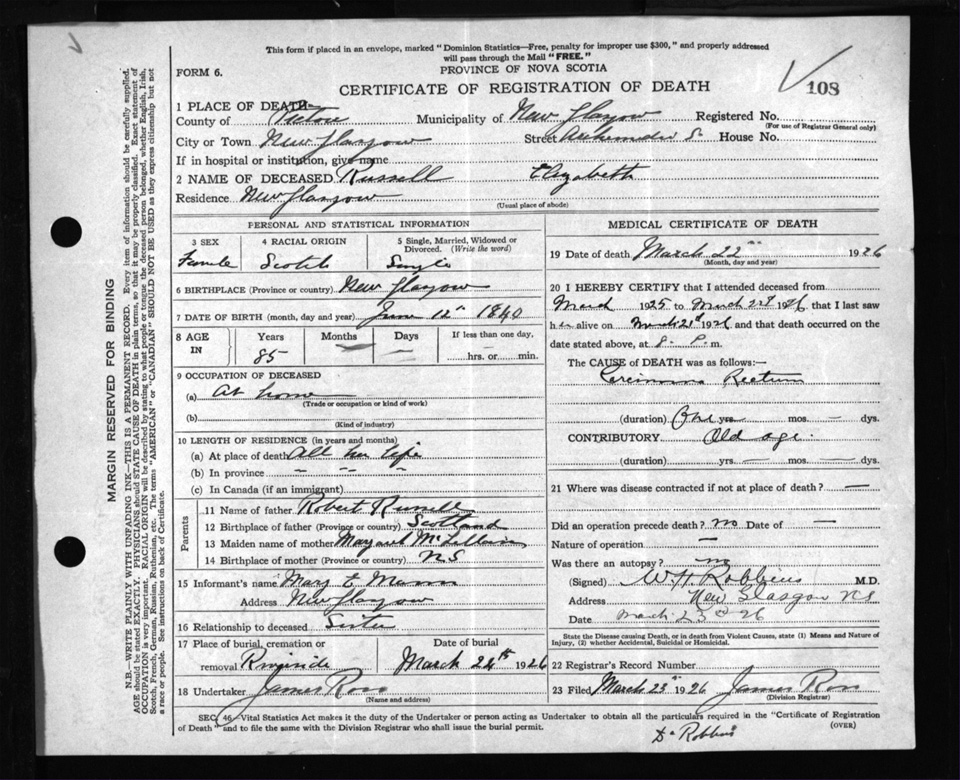 This form if placed in an envelope, marked "Dominion Statistics—Free, penalty for improper use $300," and properly addressed
will pass through the Mail "FREE."
PROVINCE OF NOVA SCOTIA
FORM 6.
CERTIFICATE OF REGISTRATION OF DEATH
108
1 PLACE OF DEATH—
County of Pictou Municipality of New Glasgow Registered No.
(For use of Registrar General only)
City or Town New Glasgow Street Archimedes S. House No.
If in hospital or institution, give name
2 NAME OF DECEASED Russell Elizabeth
Residence New Glasgow
(Usual place of abode)
PERSONAL AND STATISTICAL INFORMATION
3 SEX 4 RACIAL ORIGIN 5 Single, Married, Widowed or Divorced. (Write the word)
Female Scotch Single
6 BIRTHPLACE (Province or country) New Glasgow
7 DATE OF BIRTH (month, day and year) June 12th 1840
8 AGE IN Years Months Days If less than one day,
85 — — hrs. or min.
9 OCCUPATION OF DECEASED
(a) At home
(Trade or occupation or kind of work)
(b)
(Kind of industry)
10 LENGTH OF RESIDENCE (in years and months)
(a) At place of death All her life
(b) In province " " "
(c) In Canada (if an immigrant)
Parents
11 Name of father Robert Russell
12 Birthplace of father (Province or country) Scotland
13 Maiden name of mother Margaret
14 Birthplace of mother (Province or country) N S
15 Informant's name Mary E
Address New Glasgow
16 Relationship to deceased Sister
17 Place of burial, cremation or removal Riverside Date of burial March 24th 1926
18 Undertaker James Ross
(Name and address)
MEDICAL CERTIFICATE OF DEATH
19 Date of death March 22nd 1926
(Month, day and year)
20 I HEREBY CERTIFY that I attended deceased from
March 1925 to March 22d 1926 that I last saw
her alive on March 21st 1926 and that death occurred on the
date stated above, at 8. P. m.
The CAUSE of DEATH was as follows:—
Carcinoma Rectum
(duration) One yrs. mos. — dys.
CONTRIBUTORY Old age.
(duration) yrs. — mos. — dys.
21 Where was disease contracted if not at place of death? —
Did an operation precede death? no Date of —
Nature of operation —
Was there an autopsy? no
(Signed) W H Robbins M.D.
Address New Glasgow N S
Date March 23rd 26
State the Disease causing Death, or in death from Violent Causes, state (1) Means and Nature of
Injury, (2) whether Accidental, Suicidal or Homicidal.
22 Registrar's Record Number
23 Filed March 23rd 1926 James Ross
(Division Registrar)
SEC. 46—Vital Statistics Act makes it the duty of the Undertaker or person acting as Undertaker to obtain all the particulars required in the "Certificate of Registration
of Death" and to file the same with the Division Registrar who shall issue the burial permit.
(OVER)
Dr Robbins
MARGIN RESERVED FOR BINDING
N.B.—WRITE PLAINLY WITH UNFADING INK—THIS IS A PERMANENT RECORD. Every item of information should be carefully supplied.
AGE should be stated EXACTLY. PHYSICIANS should STATE CAUSE OF DEATH in plain terms, so that it may be properly classified. Exact statement of
OCCUPATION is very important. RACIAL ORIGIN will be described by stating to what people or tongue the deceased person belonged, whether English, Irish,
Scotch, French, German, Russian, Ruthenian, etc. The terms "AMERICAN" or "CANADIAN" SHOULD NOT BE USED as they express citizenship but not
a race or people. See instructions on back of Certificate.